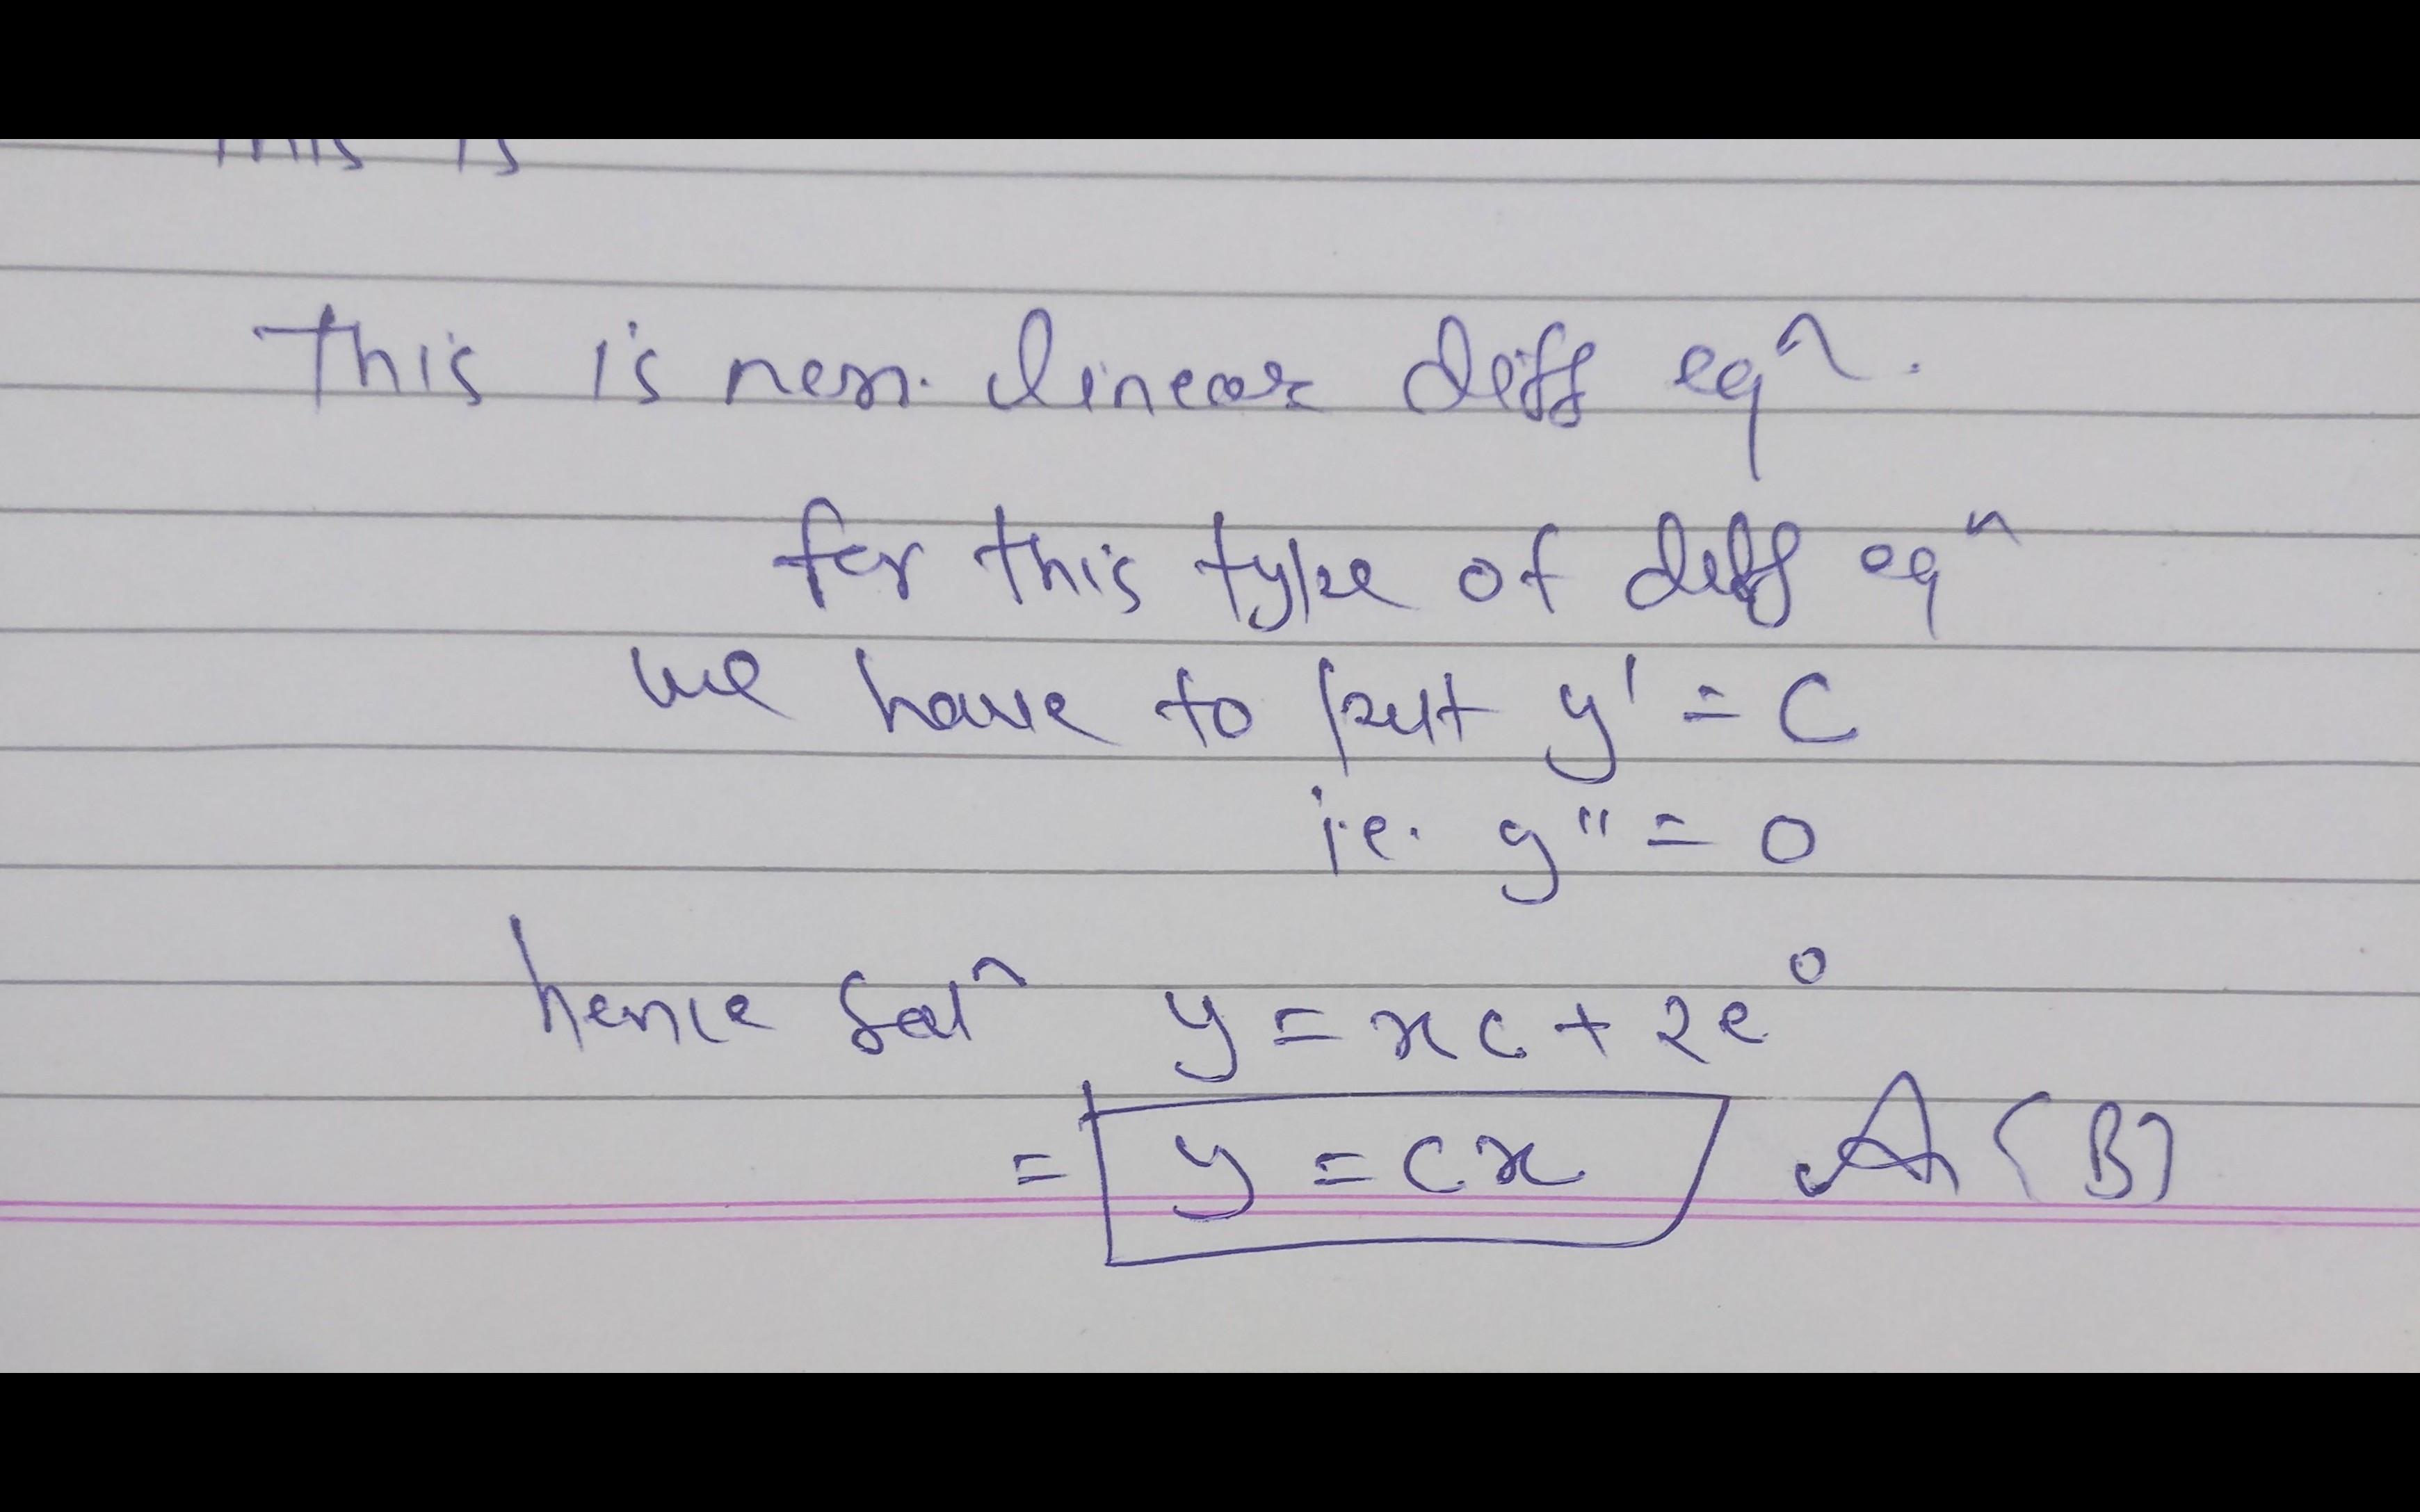 This is
This is non. linear diff eqⁿ.
for this type of diff eqⁿ
we have to put y' = C
i.e. y" = 0
hence solⁿ y = xc + 2e⁰
= y = cx A (B)